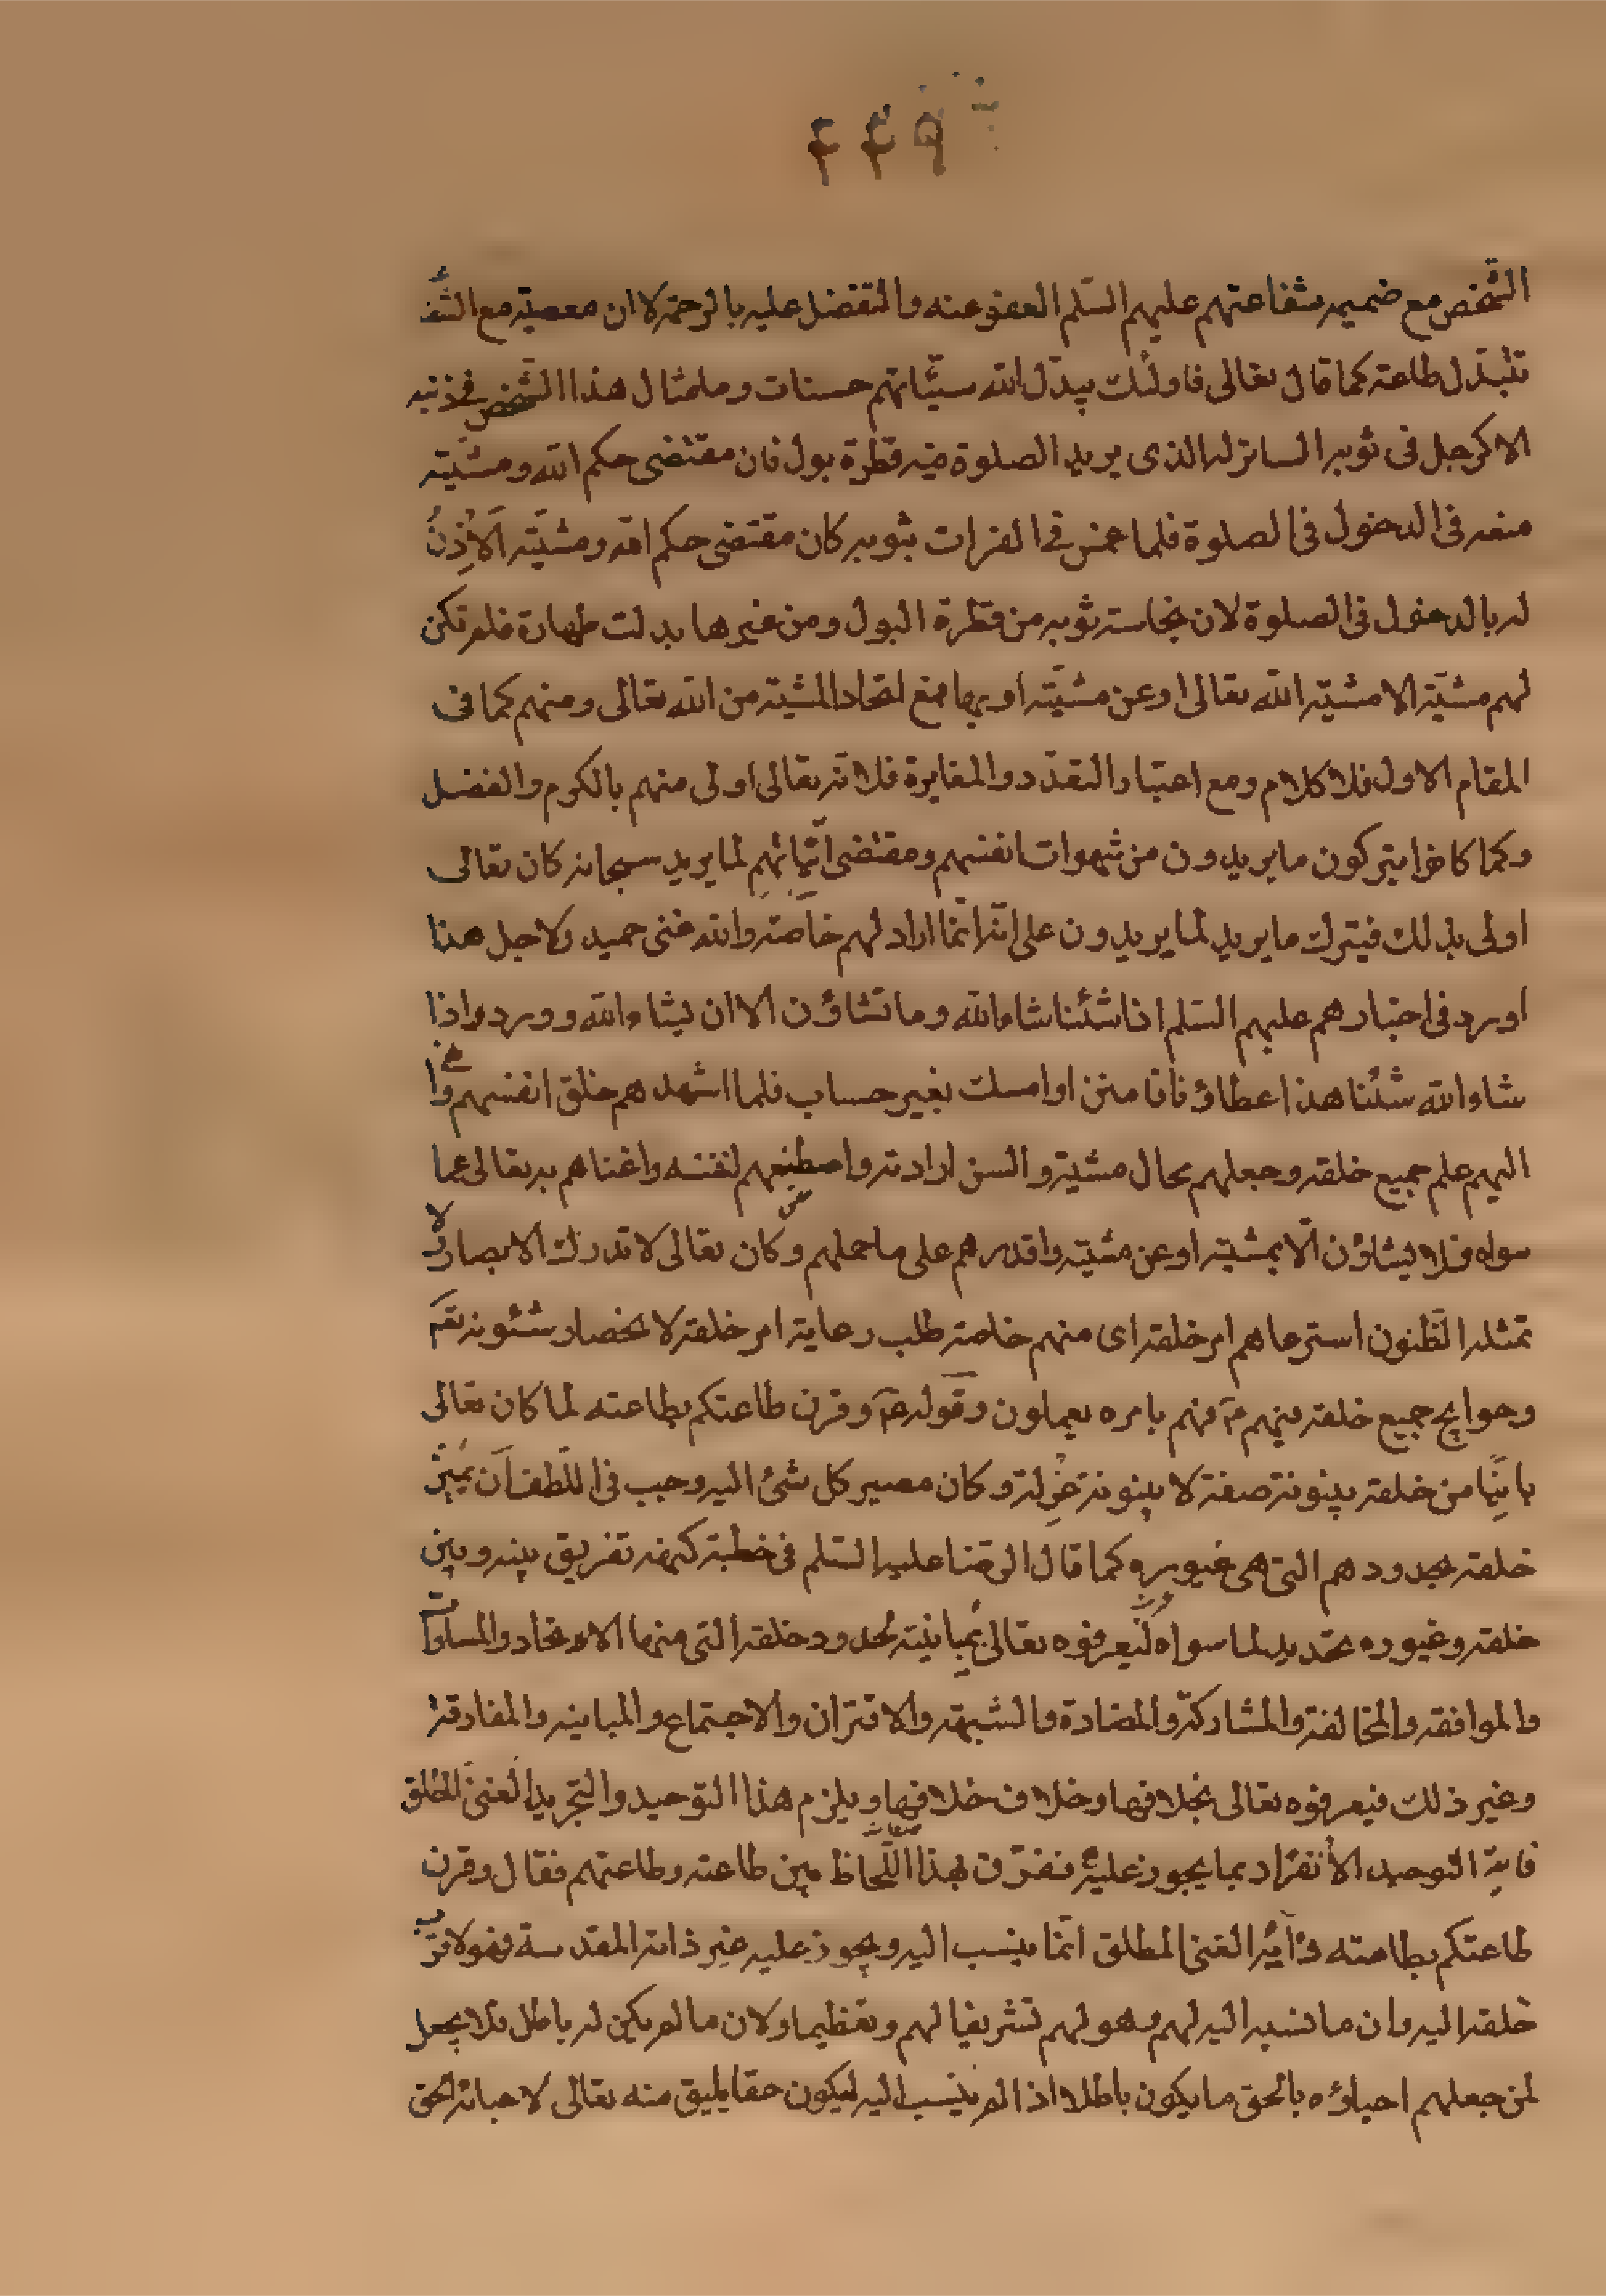 ٤٤٩
الشخص مع ضميمه شفاعتهم عليهم السّلم العفو عنه والتفضل عليه بالرحمة لا ان معصيته مع الشف
تبدّل طاعته كما قال تعالى فاولئك يبدّل الله سيّاتهم حسنات وما مثال هذا الشخص فى ذنبه
الا كرجل فى ثوبه الساتر له الذى يريد الصلوة فيه قطرة بول فان مقتضى حكم الله ومشيّته
منعه فى الدخول فى الصلوة فلما غمس فى الفرات ثوبه كان مقتضى حكم الله ومشيّته الاِذنُ
له بالدخول فى الصلوة لان نجاسة ثوبه من قطرة البول ومن غيرها بدلت طهارة فلم تكن
لهم مشيّة الا مشيّة الله تعالى او عن مشيّته او بها فمع اتحاد المشيّة من الله تعالى ومنهم كما فى
المقام الاول فلا كلام ومع اعتبار التعدّد والمغايرة فلانّه تعالى اولى منهم بالكرم والفضل
وكما كانوا يتركون ما يريدون من شهوات انفسهم ومقتضى انّياتهم لما يريد سبحانه كان تعالى
اولى بذلك فيترك ما يريد لما يريدون على انّه انّما اراد لهم خاصّة والله غنى حميد ولاجل هذا
اورد فى اخبارهم عليهم السّلم اذا شئنا شاء الله وما تشاؤن الا ان يشاء الله وورد واذا
شاء الله شئنا هذا عطاؤنا فامنن او امسك بغير حساب فلما اشهدهم خلق انفسهم وانهى
اليهم علم جميع خلقه وجعلهم محال مشيّته والسن ارادته واصطنعهم لنفسه واغناهم به تعالى عما
سواه فلا يشاؤن الّا بمشيّته او عن مشيّته واقدرهم على ما حملهم وكان تعالى لا تدركه الابصار ولا
تمثله الظّنون استرعاهم امر خلقه اى منهم خاصة طلب رعاية امر خلقه لانحصار شئونه تعم
وحوايج جميع خلقه فيهم فهم بامره يعملون وقوله وقرن طاعتكم بطاعته لما كان تعالى
بايناً من خلقه بينونة صفة لا بينونة عُزلة وكان مصير كل شئ اليه وجب فى اللّطف ان يميّز
خلقه بحدودهم التى هى غيوره كما قال الرضا عليه السّلم فى خطبة كنهه تفريق بينه وبين
خلقه وغيوره تحديد لما سواه ليعرفوه تعالى بمباينته لحدود خلقه التى منها الاتحاد والمساوات
والموافقه والمخالفة والمشاركة والمضادة والشبهة والاقتران والاجتماع والمباينه والمفارقة
وغير ذلك فيعرفوه تعالى بخلافها وخلاف خلافها ويلزم هذا التوحيد والتجريد الغنى المطلق
فاية التوحيد الأنفراد بما يجوز عليه ففرّق بهذا اللّحاظ بين طاعته وطاعتهم فقال وقرن
طاعتكم بطاعته وآية الغنى المطلق انّما ينسب اليه ويجوز عليه غير ذاته المقدسة فهو لا قرب
خلقه اليه وان ما نسبه اليه لهم وهو لهم تشريفا لهم وتعظيما ولان ما لم يكن له باطل فلا يجعل
لمن جعلهم احباؤه بالحق ما يكون باطلا اذا لم ينسب اليه ليكون حقا يليق منه تعالى لاحبائه الحق